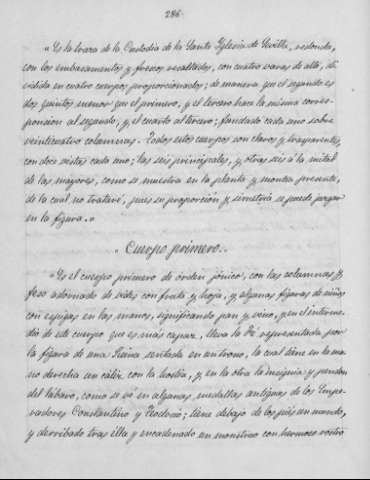 286.
"Es la traza de la Custodia de la Santa Iglesia de Sevilla, redonda,
con los embasamentos y frisos resaltados, con cuatro varas de alto, di-
vidida en cuatro cuerpos proporcionados; de manera que el segundo es
dos quintos menor que el primero, y el tercero hace la misma corres-
ponsion al segundo, y el cuarto al tercero; fundado cada uno sobre
veinticuatro columnas. Todos estos cuerpos son claros y trasparentes,
con doce vistas cada uno; las seis principales, y otras seis á la mitad
de las mayores, como se muestra en la planta y montea presente,
de la cual no trataré, pues su proporcion y simetria se puede juzgar
en la figura."
"Cuerpo primero.
"Es el cuerpo primero de órden jónico, con las columnas y
friso adornado de vides con fruta y hoja, y algunas figuras de niños
con espigas en las manos, significando pan y vino, y en el interme-
dio de este cuerpo que es más capaz, lleva la Fé representada por
la figura de una Reina sentada en un trono, la cual tiene en la ma-
no derecha un cáliz con la hostia, y en la otra la insignia y pendon
del lábaro, como se vé en algunas medallas antiguas de los Empe-
radores Constantino y Teodosio; tiene debajo de los piés un mundo,
y derribado tras ella y encadenado un monstruo con hermoso rostro